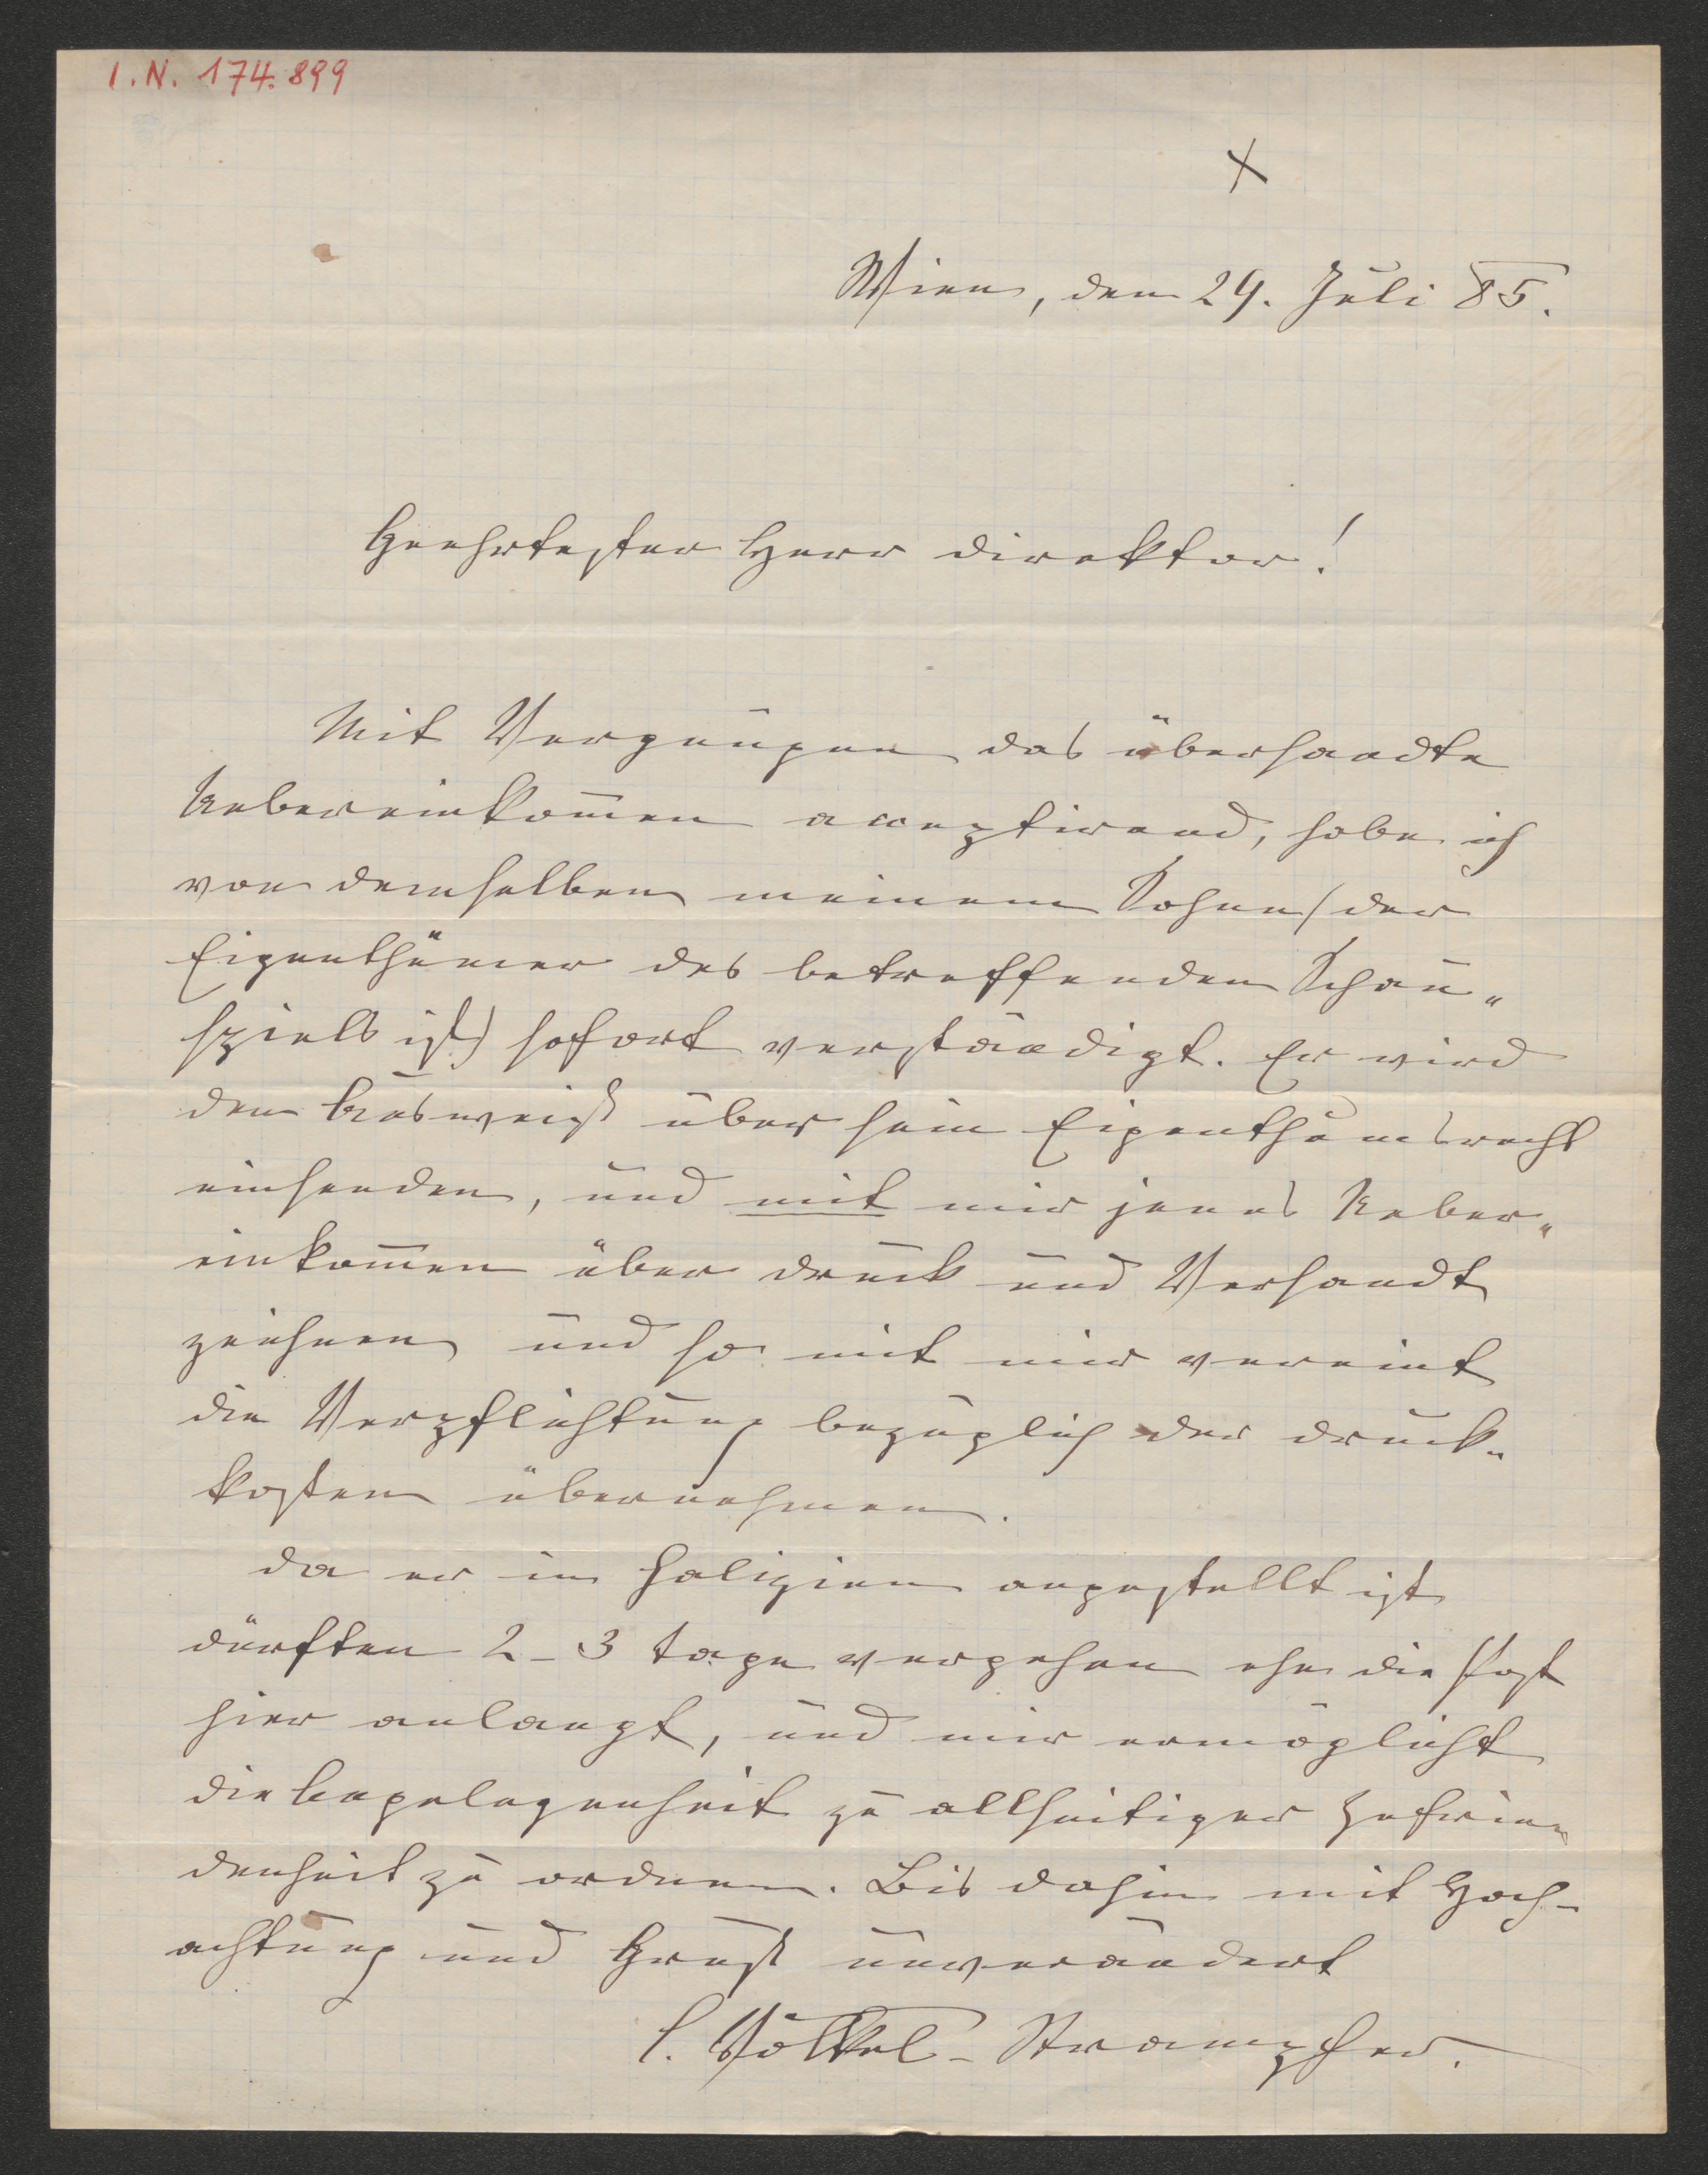 I.N. 174.899
x
Wien, den 29. Juli 85.
Geehrtester Herr Direktor!
Mit Vergnügen das übersandte
Uebereinkom̅en acceptirend, habe ich
von demselben meinem Sohne (der
Eigenthümer des betreffenden Schau„
spiels ist) sofort verständigt. Er wird
den Ausweiß über sein Eigenthumsrecht
einsenden, und mit mir jenes Ueber„
einkom̅en über Druck und Versandt
zeichnen und so mit mir vereint
die Verpflichtung bezüglich der Druck„
kosten übernehmen.
Da er in Galizien angestellt ist
dürften 2–3 Tage vergehen ehe die Post
hier anlangt, und mir ermöglicht
die Angelegenheit zu allseitiger Zufrie„
denheit zu ordnen. Bis dahin mit Hoch-
achtung und Gruß unverändert
Völkel-Strampfer.